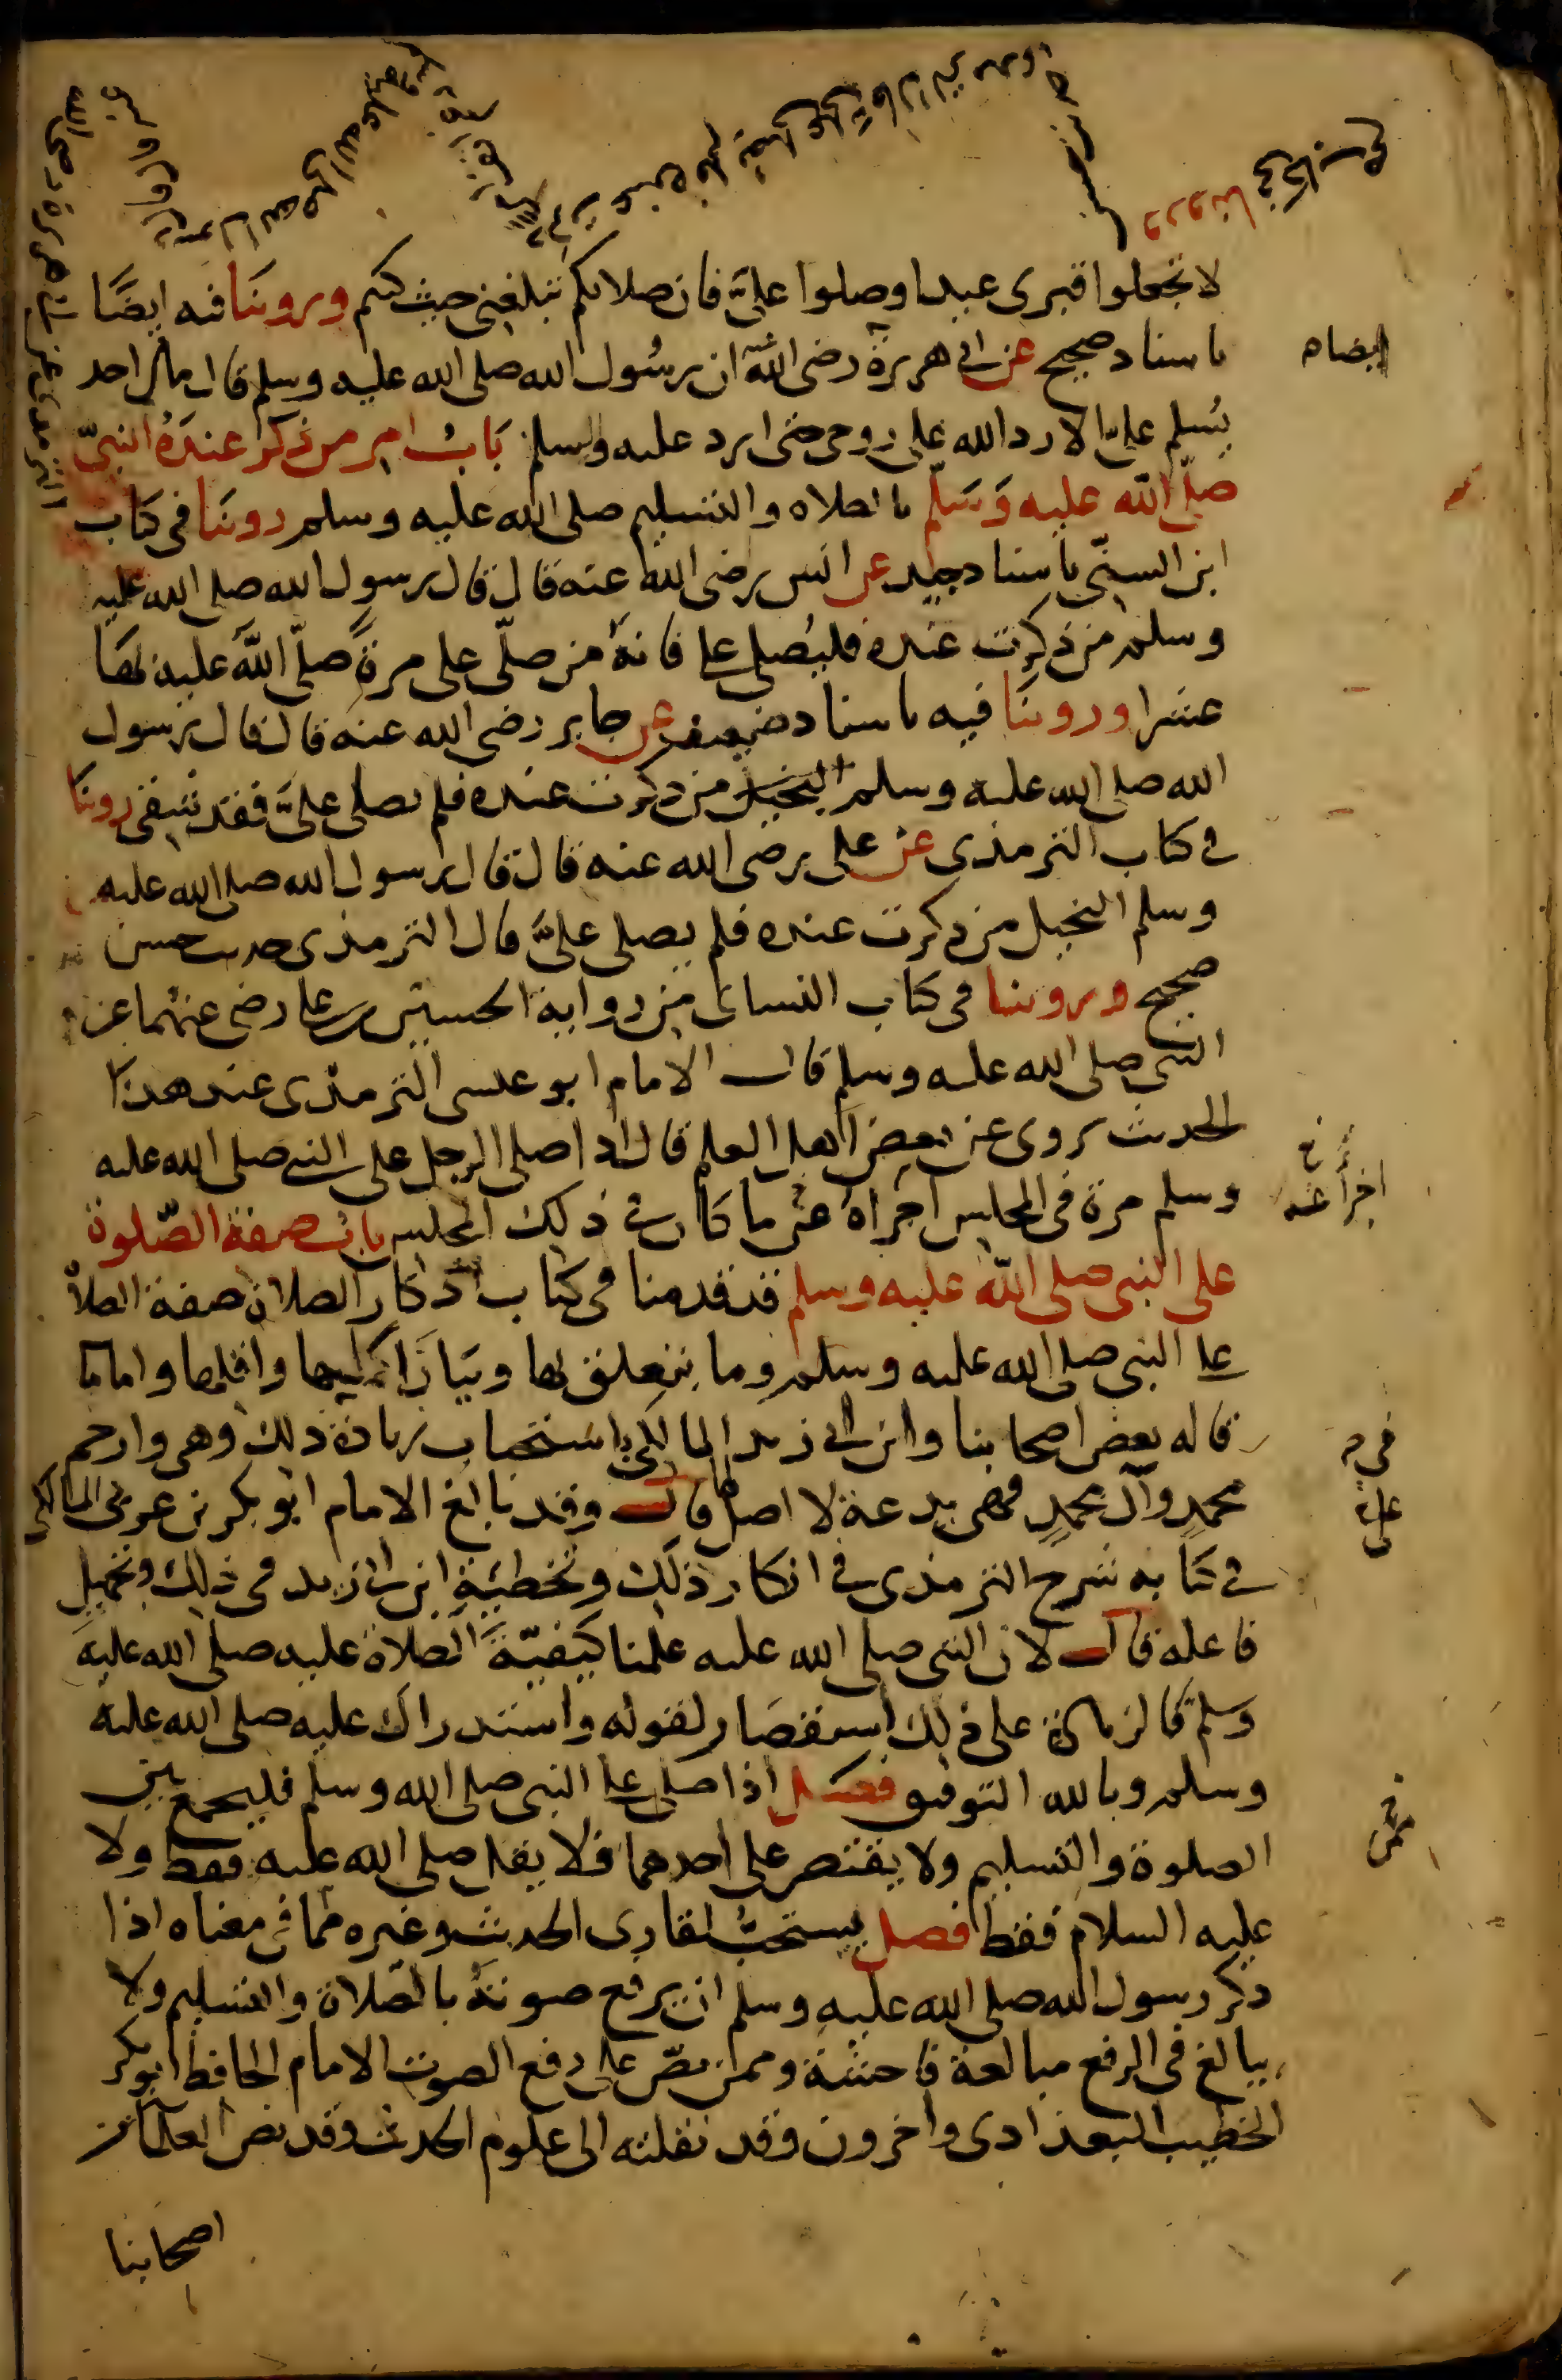 لا تجعلوا قبرى عيدا وصلوا عليَّ فان صلاتكم تبلغني حيث كنتم وروينا فيه ايضًا
باسناد صحيح عن ابي هريرة رضى الله عنه ان رسُول الله صلى الله عليه وسلم قال ما من احد
يُسلم عليَّ الا رد الله على روحي حتى ارد عليه السلم بَابُ امر من ذكر عندَهُ النبيّ
صلّى الله عليه وَسَلّم بالصلاه والتسليم صلى الله عليه وسلم روينَا فى كتاب
ابن السنيّ باسناد جيد عن انس رضى الله عنه قال قال رسول الله صلى الله عليه
وسلم من ذكرت عنده فليُصلي علي فانهُ من صلّى على مرةً صلّى اللهُ عليه بهَا
عشرا وروينَا فيه باسناد ضعيف عن جابر رضى الله عنه قال قال رسول
الله صلى الله عليه وسلم البخيل من ذكرت عنده فلم يصلي عليَّ فقد شقى روينَا
في كتاب الترمذى عن على رضى الله عنه قال قال رسول الله صلى الله عليه
وسلم البخيل من ذكرت عنده فلم يصلى عليَّ قال الترمذى حديث حسن
صحيح وروينا فى كتاب النسائى من رواية الحسين بن على رضى عنهما عن
النبي صلى الله عليه وسلم قال الامام ابو عيسى الترمذى عند هذا
الحديث يروى عن بعض اهل العلم قال اذا صلى الرجل على النبي صلى الله عليه
وسلم مرة فى المجلس اجزاهُ عن ما كان في ذلك المجلس باب صفة الصّلوة
على النبى صلى الله عليه وسلم قد قدمنا فى كتاب اذكار الصلاة صفة الصلاة
على النبى صلى الله عليه وسلم وما يتعلق بها وبيان اكملها واقلها واما ما
قاله بعض اصحابنا وابن ابي زيد المالكى استحباب زيادة ذلك وهى وارحم
محمدٍ وآل محمدٍ فهى بدعة لا اصل لها قال وقد بالغ الامام ابو بكر بن عربى المالكى
في كتابه شرح الترمذى في انكار ذلك وتخطيَةِ ابن ابى زيد فى ذلك وتجهيلِ
فاعله قال لان النبى صلى الله عليه علمنا كيفيّة الصلاة عليه صلى الله عليه
وسلم فالزيادة على ذلك استقصَار لقوله واستدراك عليه صلى الله عليه
وسلم وبالله التوفيق فصل اذا صلى على النبى صلى الله وسلم فليجمع بين
الصلوة والتسليم ولا يقتصر على احدهما فلا يقل صلى الله عليه فقط ولا
عليه السلام فقط فصل يستحبُّ لقارى الحديث وغيره مما فى معناه اذا
ذكر رسول الله صلى الله عليه وسلم ان يرفع صوتهُ بالصّلاة والتسليم ولا
يبالغ فى الرفع مبالغة فاحشة وممن نصّ على رفع الصوت الامام الحافظ ابو بكر
الخطيب البغدادى واخرون وقد نقلته الى علوم الحديث وقد نص العلما من
اصحابنا